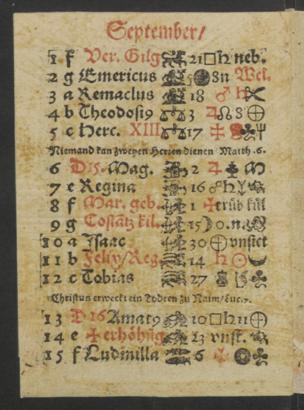 September/
1 f Ver. Gilg 21 □ ♄ neb.
2 g Emericus 5 8n Wei.
3 a Remaclus 18 ♂ ♄
4 b Theodosi9 3 ☊ 8
5 c Herc. XIII 17 ♃
Niemand kan zweyen Herzen dienen Matth. 6.
6 D 15. Mag. 2 ♃
7 e Regina 16 ♄
8 f Mar. geb. 1 trüb kül
9 g Costātz kil. 15 o.n.
10 a Isaac 30 vnstet
11 b Felix/Reg. 14 ♄
12 c Tobias 27
Christus erweckt ein Todten zu Naim/Luc. 7.
13 D 16 Amat9 10 □ ♄ 11
14 e erhöhūg 23 vnst.
15 f Ludmilla 6